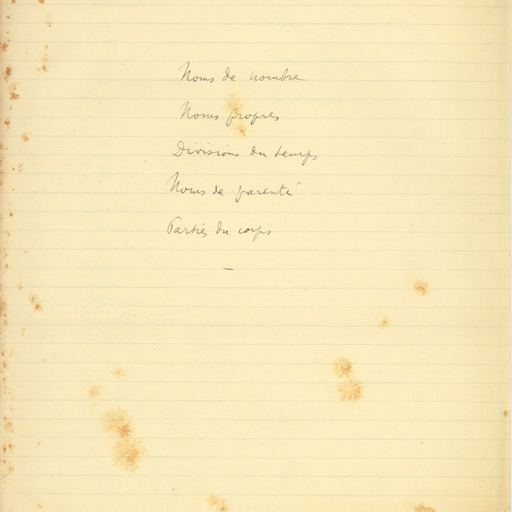 Noms de nombre
Noms propres
Divisions du temps
Noms de parenté
Parties du corps